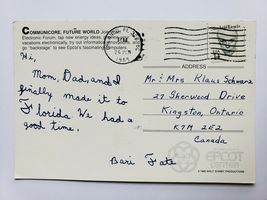 COMMUNICORE, FUTURE WORLD Join
Electronic Forum, tap new energy ideas,
vacations electronically, try out informati
go "backstage" to see Epcot's fascinating computers.
Hi,
Mom, Dad, and I
finally made it to
Florida. We had a
good time.
Bari Fate
PM
1985
ADDRESS
Mr. & Mrs Klaus Schwarz
27 Sherwood Drive
Kingston, Ontario
K7M 2E2
Canada
EPCOT
CENTER
WALT DISNEY PRODUCTIONS